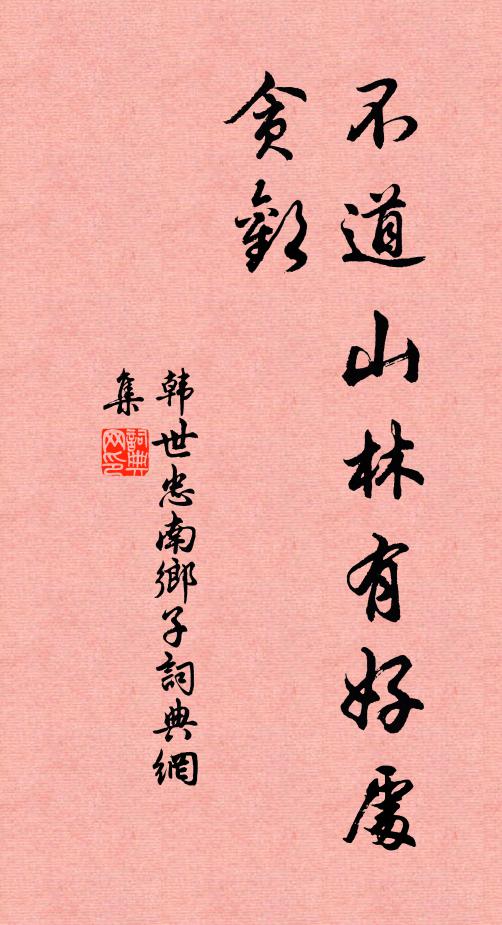 不道山林有好處
貪歡
韩世忠南鄉子詞典網
集
詞典
网印